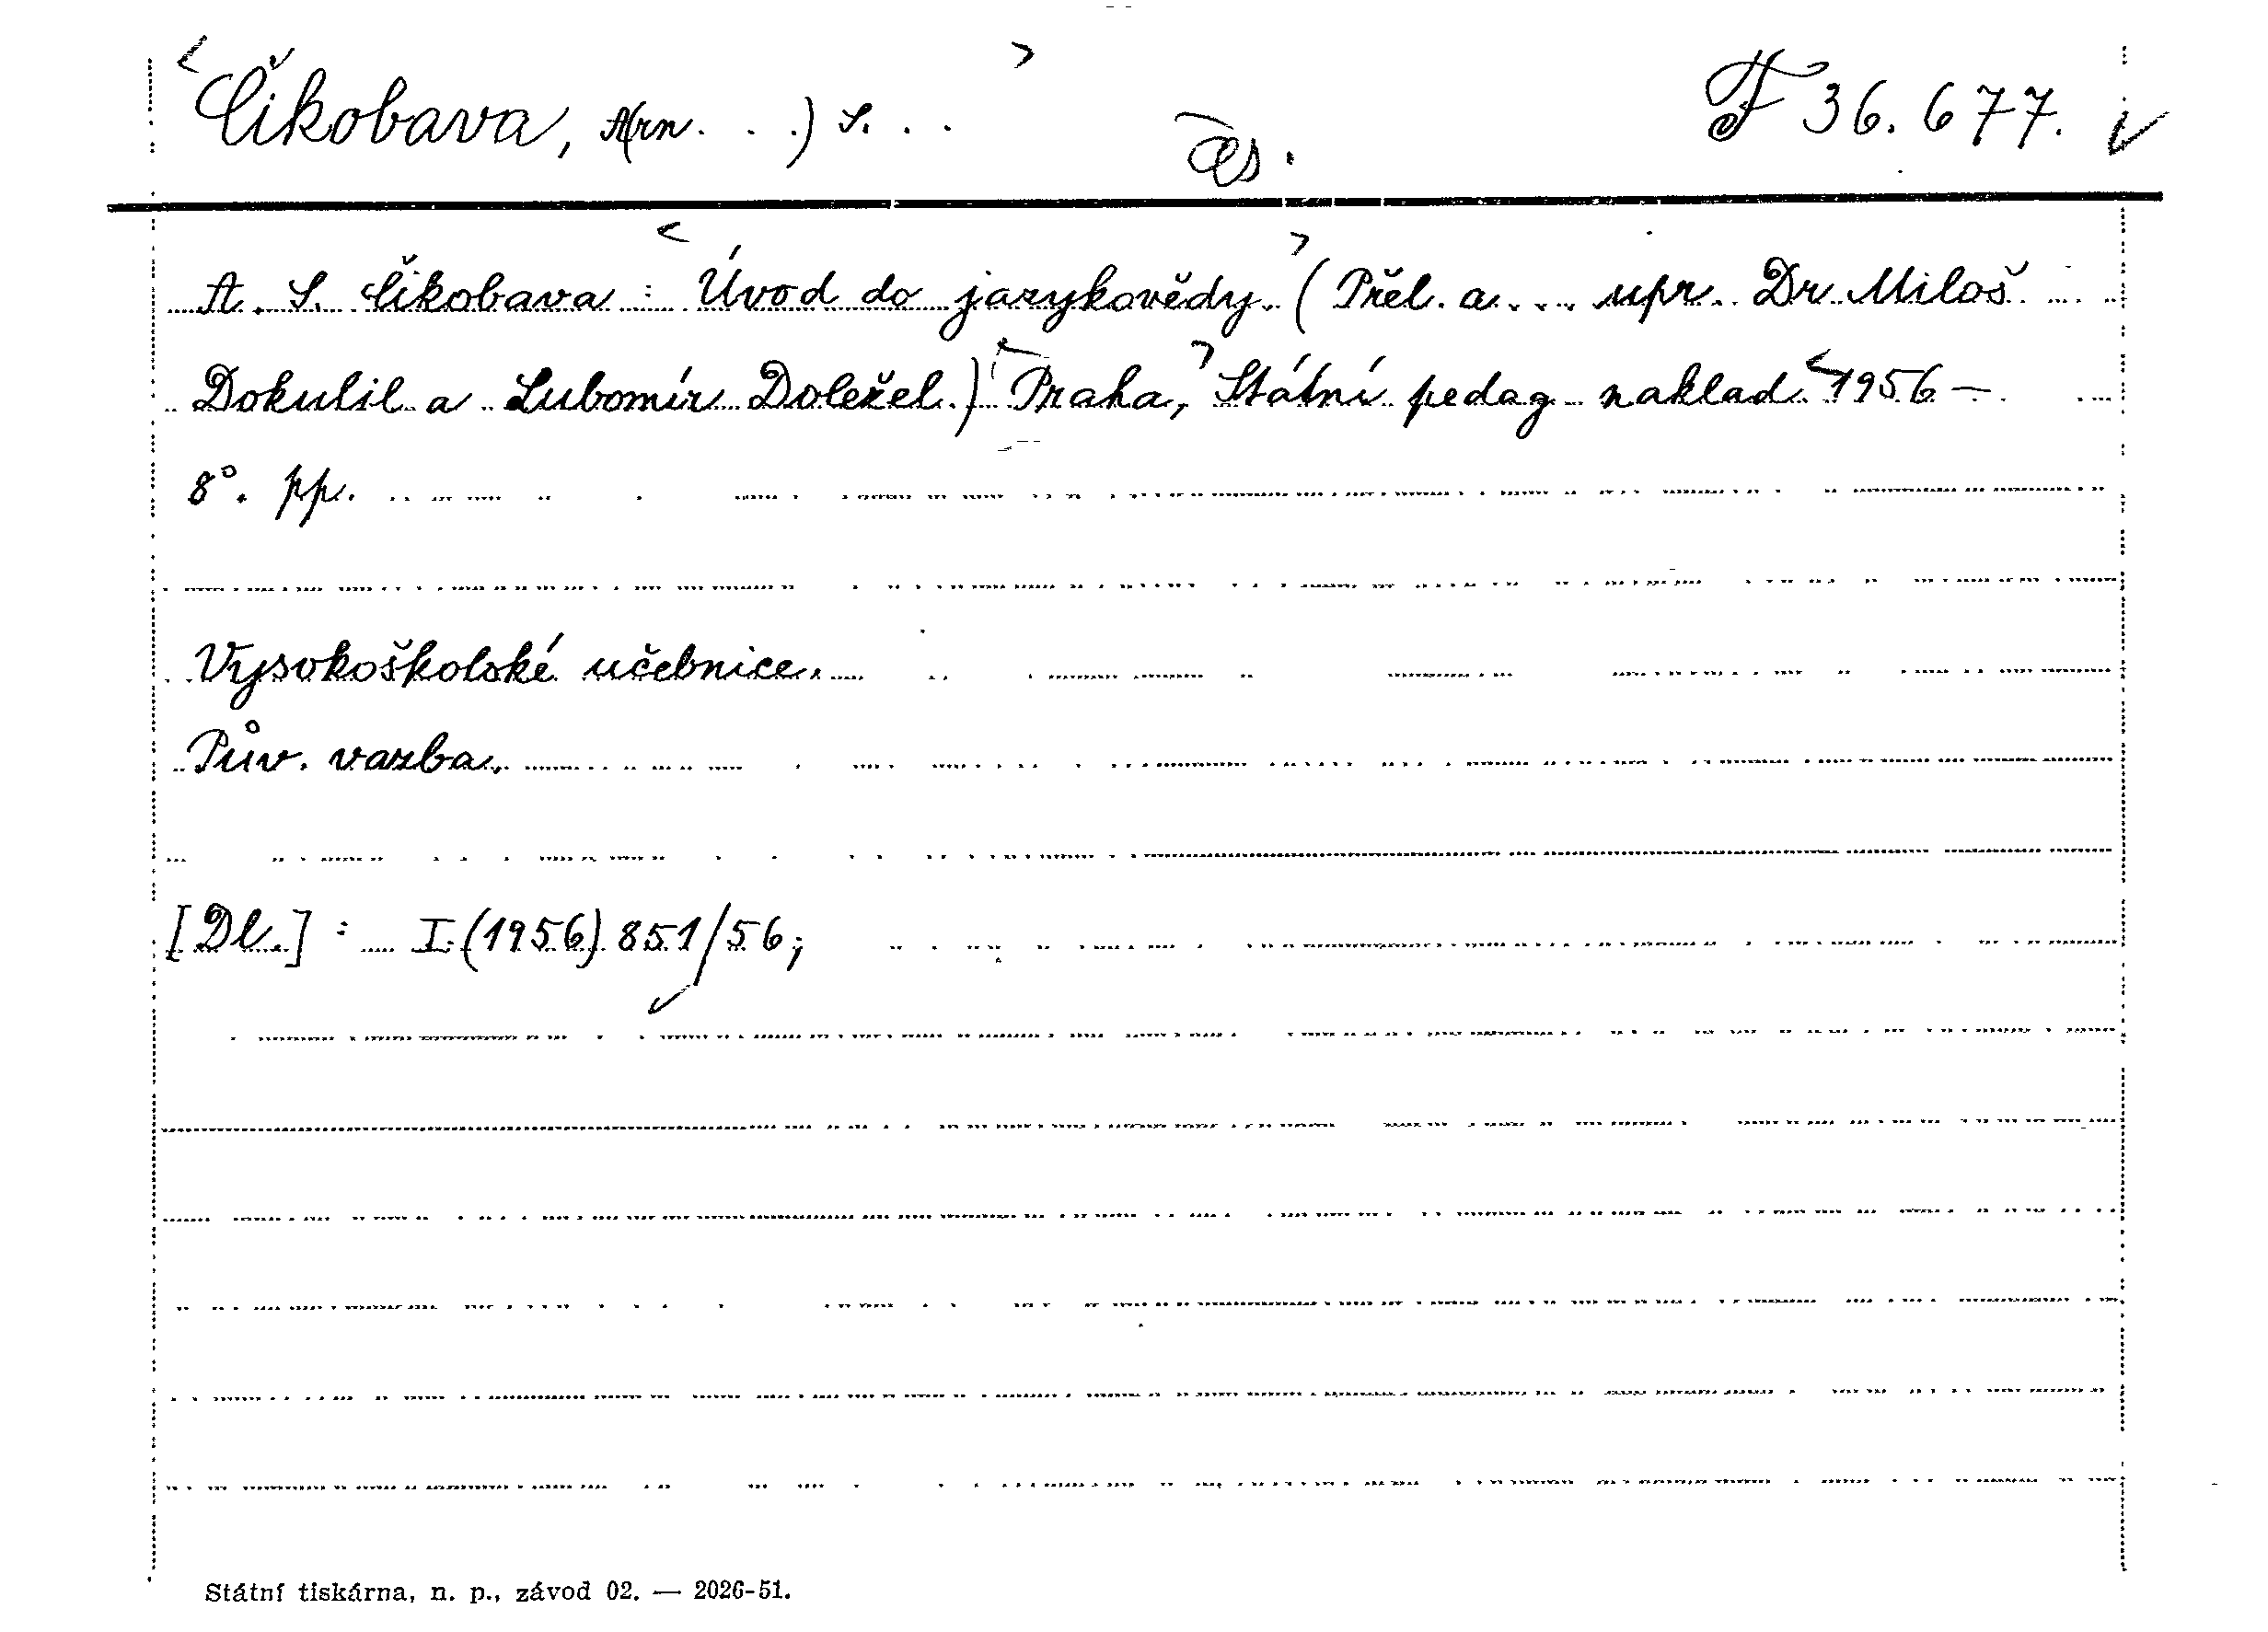 Čikobava, A(rn. . .) S. . .
F 36.677.
A. S. Čikobava : Úvod do jazykovědy. (Přel. a . . . upr. Dr Miloš
Dokulil a Lubomír Doležel.) Praha, Státní pedag naklad. 1956 —
8°. pp.
Vysokoškolské učebnice.
Pův. vazba.
[Dl.] : I (1956) 851/56;
Státní tiskárna, n. p., závod 02. — 2026-51.